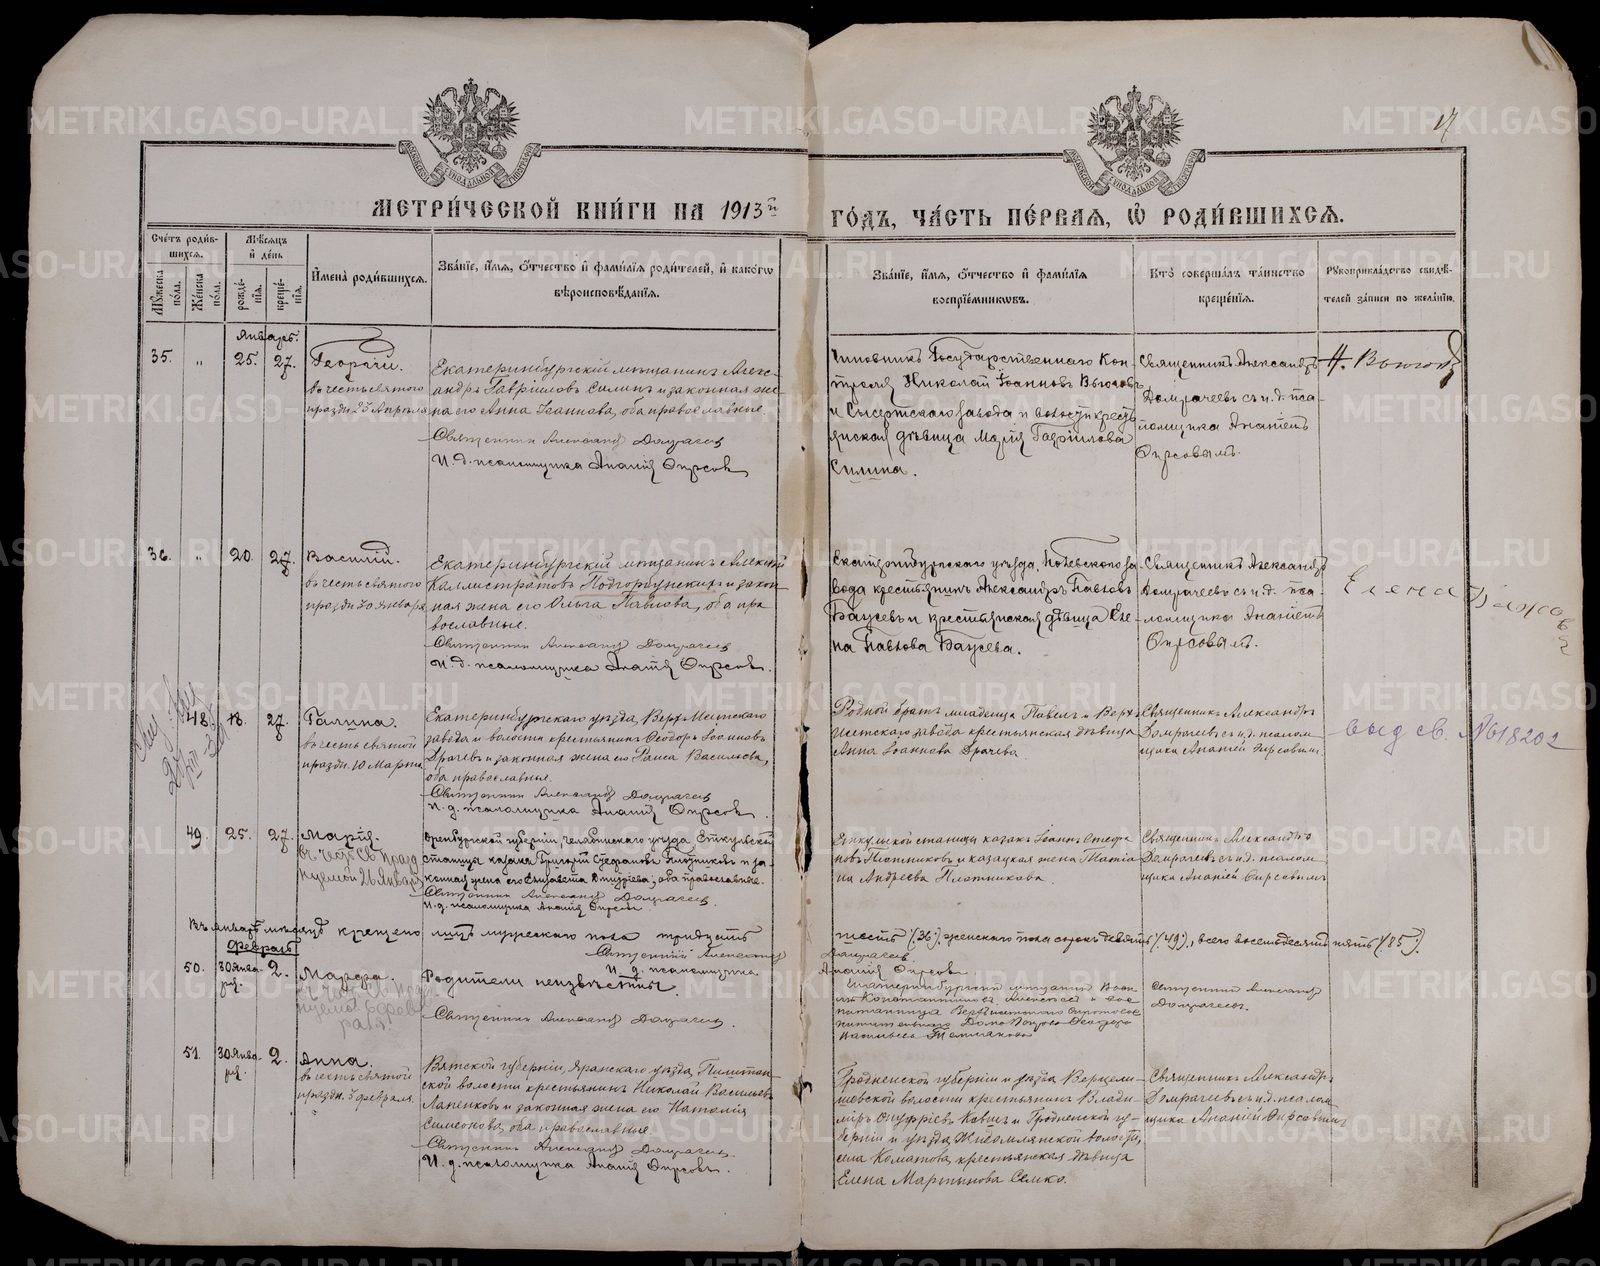 17
МЕТРИ́ЧЕСКОЙ КНИ́ГИ НА 1913й ГО́ДЪ, ЧА́СТЬ ПЕ́РВАЯ, Ѿ РОДИ́ВШИХСЯ.
Сче́тъ роди́в-
шихся.
Мꙋ́жеска по́ла.
Же́нска по́ла.
Мѣ́сяцъ и де́нь
рожде́-
нія.
креще́-
нія.
И҆мена̀ роди́вшихся.
Зва́ніе, и҆́мя, ѻ҆́тчество и҆ фами́лія роди́телей, и҆ како́гѡ
вѣроисповѣ́данія.
Зва́ніе, и҆́мя, ѻ҆́тчество и҆ фами́лія
воспріе́мникѡвъ.
Кто̀ соверша́лъ та́инство
креще́нія.
Рꙋкоприкла́дство свидѣ́-
телей за́писи по жела́нію.
Январь.
35. " 25. 27. Георгій.
въ честь святого
празди. 23 Апрѣля
Екатеринбургскій мѣщанинъ Алекс-
андръ Гавріиловъ Силинъ и законная же-
на его Анна Іоаннова, оба православные.
Священникъ Александръ Домрачевъ
И. д. псаломщика Ананій Фирсовъ
Чиновникъ Государственнаго Кон-
троля Николай Іоанновъ
и Сысертскаго завода и волости кресть-
янская дѣвица Марія Гавріилова
Силина.
Священникъ Александръ
Домрачевъ съ и. д. пса-
ломщика Ананіемъ
Фирсовымъ.
36. " 20. 27. Василій.
въ честь святого
празди. 30 января
Екатеринбургскій мѣщанинъ Алексій
Каллистратовъ Подгорбунскихъ и закон-
ная жена его Ольга Павлова, оба пра-
вославные.
Священникъ Александръ Домрачевъ
И. д. псаломщика Ананій Фирсовъ.
Екатеринбургскаго уѣзда, за-
вода крестьянинъ Александръ Павловъ
Баусевъ и крестьянская дѣвица Еле-
на Павлова Баусева.
Священникъ Александръ
Домрачевъ съ и. д. пса-
ломщика Ананіемъ
Фирсовымъ.
Елена
48. 18. 27. Галина.
въ честь святой
празди. 10 Марта
Екатеринбургскаго уѣзда, Верх-Исетскаго
завода и волости крестьянинъ Ѳеодоръ Іоанновъ
Драчевъ и законная жена его Раиса Васильева,
оба православные.
Священникъ Александръ Домрачевъ
И. д. псаломщика Ананій Фирсовъ.
Родной братъ младенца Павелъ и Верх-
Исетскаго завода крестьянская дѣвица
Анна Іоаннова Драчева
Священникъ Александръ
Домрачевъ съ и. д. псалом-
щика Ананій Фирсовымъ
выд св. №18202
49. 25. 27. Марія.
въ честь св. празд
нуемой 26 Января
Оренбургской губерніи, Челябинскаго уѣзда, Еткульской
станицы казакъ Григорій Стефановъ Плотниковъ и за-
конная жена его Елизавета Димитріева, оба православные.
Священникъ Александръ Домрачевъ.
И. д. псаломщика Ананій Фирсовъ
Еткульской станицы казакъ Іоаннъ Стефа-
новъ Плотниковъ и казацкая жена Татіа-
на Андреева Плотникова.
Священникъ Александръ
Домрачевъ съ и. д. псалом-
щика Ананій Фирсовымъ
Въ январѣ мѣсяцѣ крещено лицъ мужескаго пола тридцать шесть (36), женскаго пола сорокъ девять (49), всего восемьдесятъ пять (85).
Священникъ Александръ Домрачевъ.
И. д. псаломщика Ананій Фирсовъ.
Февраль
50. 30 Янва-
ря. 2. Марѳа.
Родители неизвѣстны.
Священникъ Александръ Домрачевъ.
Екатеринбургскій мѣщанинъ
Константиновъ Алексѣевъ и вос-
питанница Верхисетскаго Сиротовос-
питательнаго Дома
Васильева
Священникъ Александръ
Домрачевъ.
51. 30 Янва-
ря. 2. Анна.
въ честь святой
празди. 3 февраля.
Вятской губерніи, Яранскаго уѣзда, Пилитан-
ской волости крестьянинъ Николай Васильевъ
Лапенковъ и законная жена его Наталія
Симеонова, оба православные.
Священникъ Александръ Домрачевъ.
И. д. псаломщика Ананій Фирсовъ.
Гродненской губерніи и уѣзда Верцели-
шевской волости крестьянинъ Влади-
міръ Онуфріевъ и Гродненской гу-
берніи и уѣзда, Жидомлянской волости,
села крестьянская дѣвица
Елена Мартынова Семко.
Священникъ Александръ
Домрачевъ съ и. д. псалом-
щика Ананій Фирсовымъ
METRIKI.GASO-URAL.RU